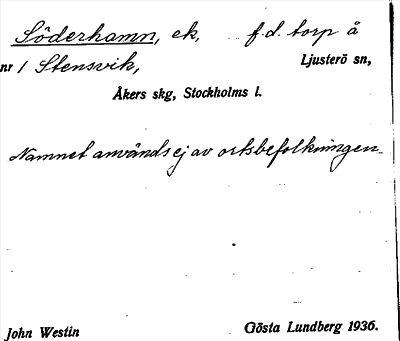 Söderhamn, ek, f.d. torp å
nr 1 Stensvik, Ljusterö sn,
Åkers skg, Stockholms l.
Namnet används ej av ortsbefolkningen
John Westin Gösta Lundberg 1936.